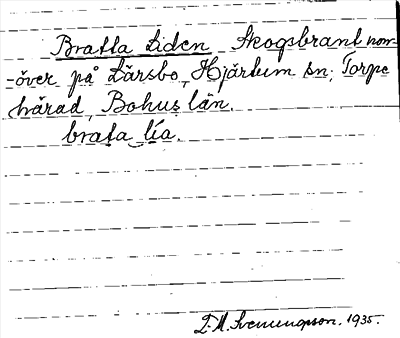 Bratta Liden Skogsbrant nor-
-över på Lärsbo, Hjärtum sn, Torpe
härad, Bohus län.
brata lia.
D. M. Svenungsson. 1935.